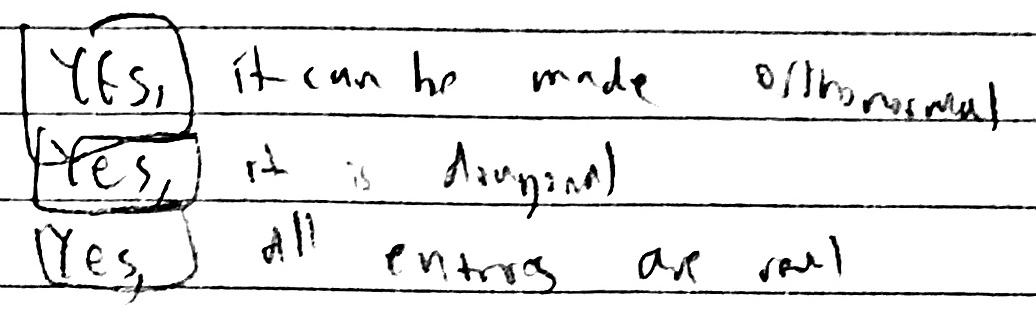 Yes, it can be made orthonormal
Yes, it is diagonal
Yes, all entries are real